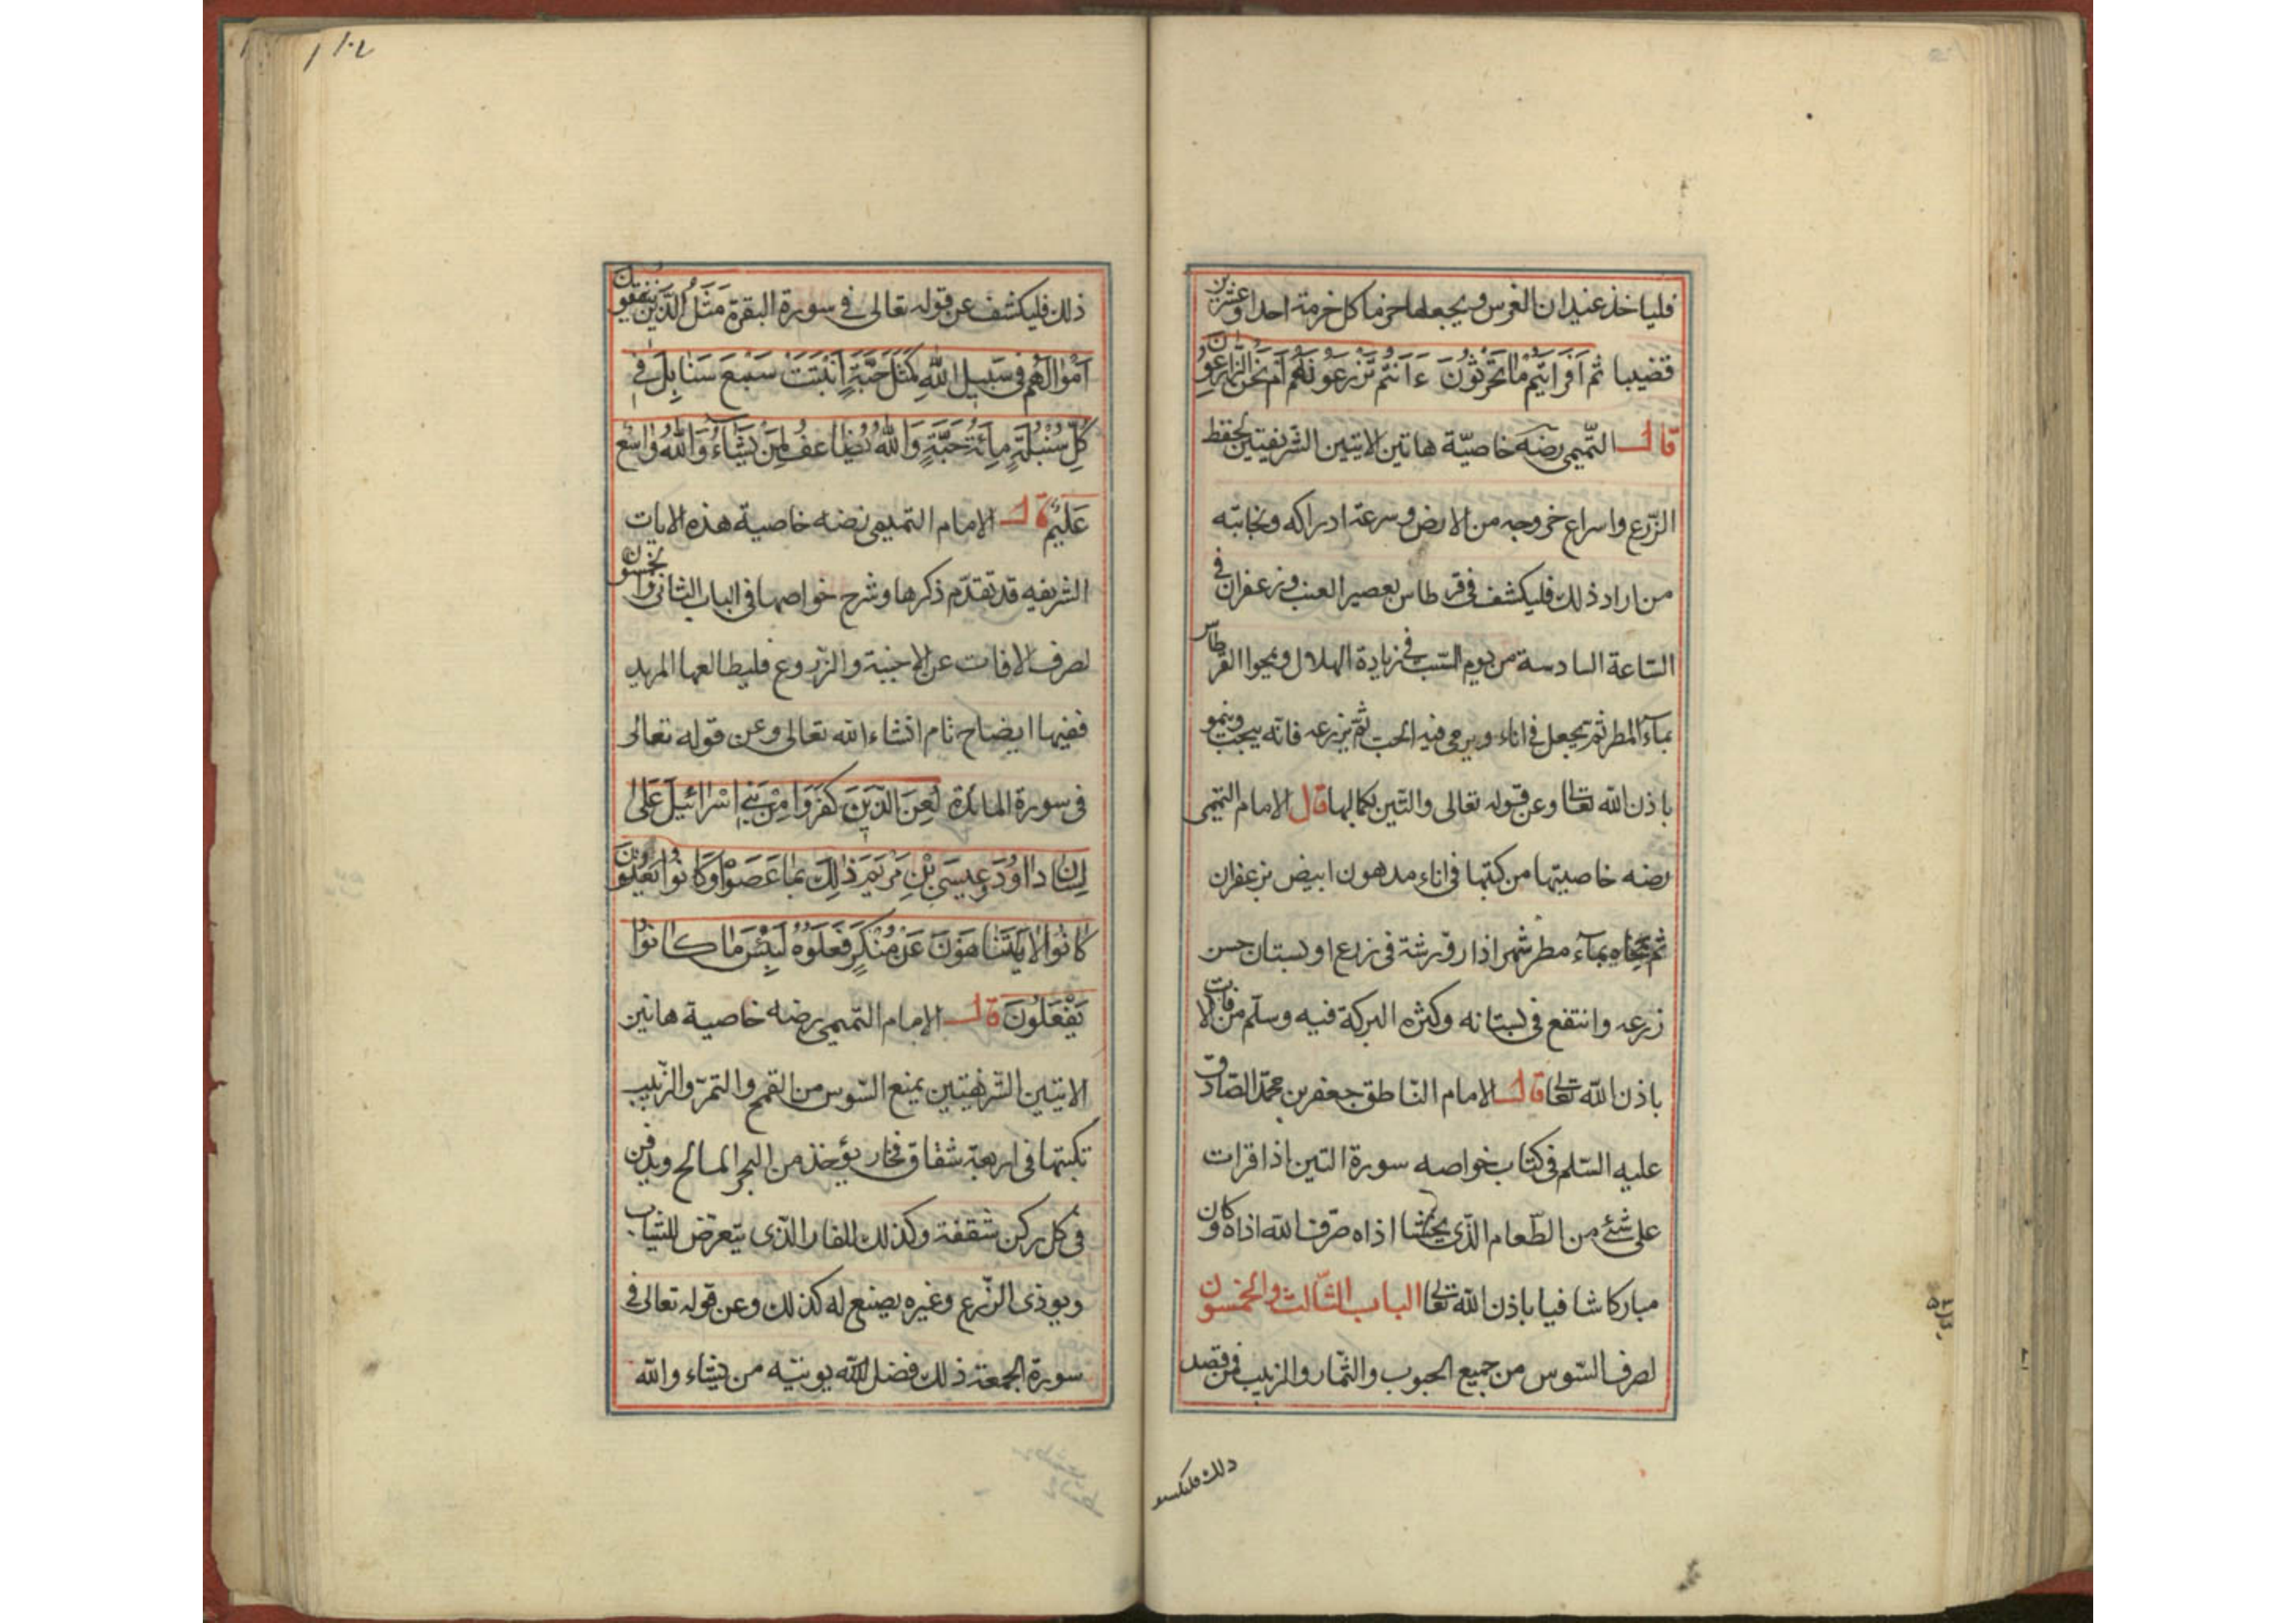 فلياخذ عيدان الغرس ويجعلها حزما كل خرمة احدا وعشرين
قضيبا ثم اَفَرَاَيْتُمْ مَّا تَحْرُثُوْنَ ءَاَنْتُمْ تَزْرَعُوْنَهُ اَمْ نَحْنُ الزَّارِعُوْنَ
قال التميمى رضه خاصيّة هاتين الايتين الشريفتين لحفظ
الزّرع واسراع خروجه من الارض وسرعة ادراكه ونجابته
من اراد ذلك فليكشف فى قرطاس بعصير العنب وزعفران فى
السّاعة السادسة من يوم السّبت فى زيادة الهلال ويمحوا القرطاس
بمآء المطر ثم يجعل فى اناء ويرمى فيه الحب ثم يزرعه فانه ينجب وينمو
باذن الله تعالى وعن قوله تعالى والتين بكمالها قال الامام التميمى
رضه خاصيتها من كتبها فى اناء مدهون ابيض بزعفران
ثم محاه بمآء مطر شهر اذار ورشة فى زرع او بستان حسن
زرعه وانتفع فى بستانه وكثره البركة فيه وسلم من الافات
باذن الله تعالى قال الامام النّاطق جعفر بن محمّد الصّادق
عليه السّلم فى كتاب خواصه سورة التين اذا قرات
على شئ من الطّعام الذّى يخشا اذاه صرف الله اذاه وكان
مباركا شافيا باذن الله تعالى الباب الثّالث والخمسون
لصرف السّوس من جميع الحبوب والثّمار والزبيب فمن قصد
ذلك فليكشف
١٠٢
ذلك فليكشف عن قوله تعالى فى سورة البقرة مَثَلُ الَّذِيْنَ يُنْفِقُوْنَ
اَمْوَالَهُمْ فِى سَبِيلِ اللهِ كَمَثَلِ حَبَّةٍ اَنْبَتَتْ سَبْعَ سَنَابِلَ فِى
كُلِّ سُنْبُلَةٍ مِائَةُ حَبَّةٍ وَاللهُ يُضَاعِفُ لِمَنْ يَشَاءُ وَاللهُ وَاسِعٌ
عَلِيْمٌ قال الامام التميمى رضه خاصية هذه الايات
الشريفه قد تقدّم ذكرها وشرح خواصها فى الباب الثانى والخمسون
لصرف الافات عن الاجنية والزّروع فليطالعها المريد
ففيها ايضاح تام انشاء الله تعالى وعن قوله تعالى
فى سورة المائدة لُعِنَ الَّذِيْنَ كَفَرُوْا مِنْ بَنِى اِسْرَائِيْلَ عَلَى
لِسَانِ دَاوُدَ وَعِيسَى بْنِ مَرْيَمَ ذَالِكَ بِمَا عَصَوْا وَكَانُوْا يَعْتَدُوْنَ
كَانُوْا لَا يَتَنَاهَوْنَ عَنْ مُنْكَرٍ فَعَلُوْهُ لَبِئْسَ مَا كَانُوْا
يَفْعَلُوْنَ قال الامام التميمى رضه خاصية هاتين
الايتين الشريفتين يمنع السّوس من القمح والتمر والزّبيب
تكبتها فى اربعة شقاق فخار يؤخذ من البحر المالح ويدفن
فى كل ركن شقفة وكذلك للفار الذّى يتعرض للثياب
ويوذى الزّرع وغيره يصنع له كذلك وعن قوله تعالى فى
سورة الجمعة ذلك فضل الله يوتيه من يشاء والله